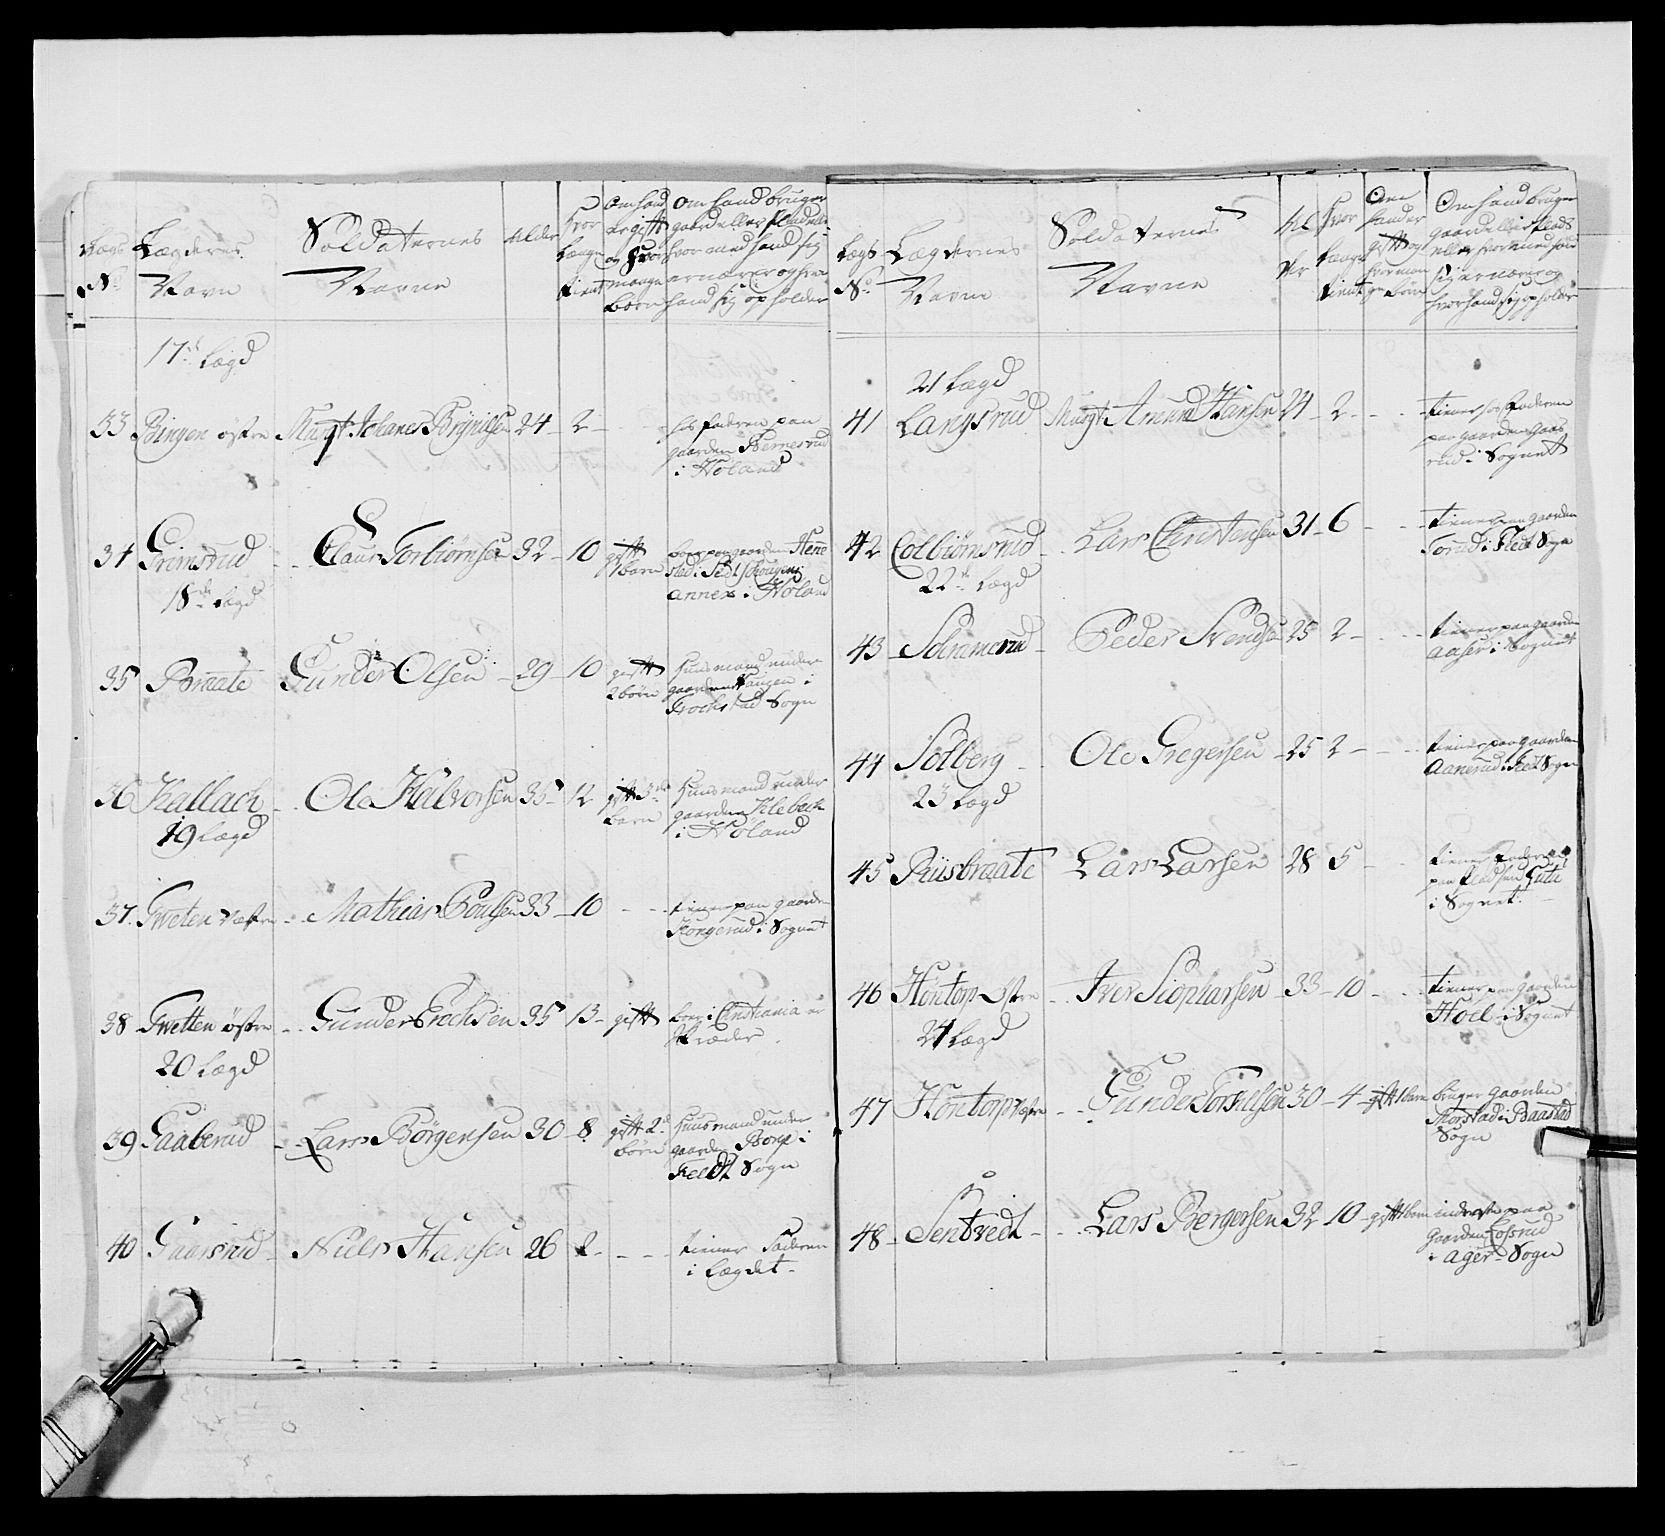 Lægs Lægdernes Soldaternes Alder Hvor Om hand Om hand bruger
No Navn Navne længe er gift gaard eller Plads eller
tient og hvor hvormed hand sig
mange ernærer og hvor
børn hand sig opholder
17de Lægd
33 Bingen østre Musqt Johanes Brynilsen 24 - 2 - hos faderen paa
gaarden Hemnesrud
i Høland
34 Grimsrud Claus Torbiørnsen 32 - 10 gift boer paa gaarden Henne
1 barn sted i
18de Lægd annex i Høland
35 Braate Gunder Olsen - 29 - 10 gift Huusmand under
2 børn gaarden Haugen i
Trøchstad Sogn
36 Kallach - Ole Halvorsen 35 - 12 gift 3de Huusmand under
børn gaarden Klebech
19 Lægd i Høland
37. Tweten Væstre - Mathias Poulsen 33 - 10 - - tiener paa gaarden
Kongerud i Sognet
38 Twetten østre - Gunder Erichsen 35 - 13 - gift boer i Christiania er
Skræder.
20 Lægd
39 Gaaberud - Lars Børgensen 30 - 8 gift 2de Huusmand under
børn gaarden Borge i
Feldt Sogn
40 Gaarsrud - Niels Hansen 26 - 2 - - - - tiener Faderen
i Lægdet -
Lægs Lægdernes Soldaternes Al Hvor Om Om hand bruger
No Navne Navne der længe hand er gaard eller Plads
tient gift og eller hvormed hand
hvor man sig ernærer og
ge børn hvor hand sig opholder
21 Lægd
41 Langsrud Musqt Amund Hansen 24 - 2 - - - tiener hos Faderen
paa gaarden Gaas
rud i Sognet
42 Colbiørnsrud - Lars Christensen 31 - 6 - - - tiener paa gaarden
i Fledt Sogn
22de Lægd
43 - Peder Svendsen 25 2 - - - tiener paa gaarden
Aaser i Sognet
44 Solberg - Ole Gregersen - 25 2 - - - tiener paa gaarden
Aanerud i Fledt Sogn
23 Lægd
45 Riisbraate Lars Larsen 28 - 5 - tiener Faderen
paa Pladsen
i Sognet. -
46 Hontorp Østre - Iver Siøphersen - 33 - 10 - - tiener paa gaarden
Hoel i Sognet
24 Lægd
47 Hontorp Væstre - Gunder Torkilsen 30 - 4 - gift 1 barn bruger gaarden
i Baastad
Sogn
48 - Sentvedt - - Lars Bergersen 32 - 10 - gift 1 barn inderste paa
gaarden
i Ager - Sogn